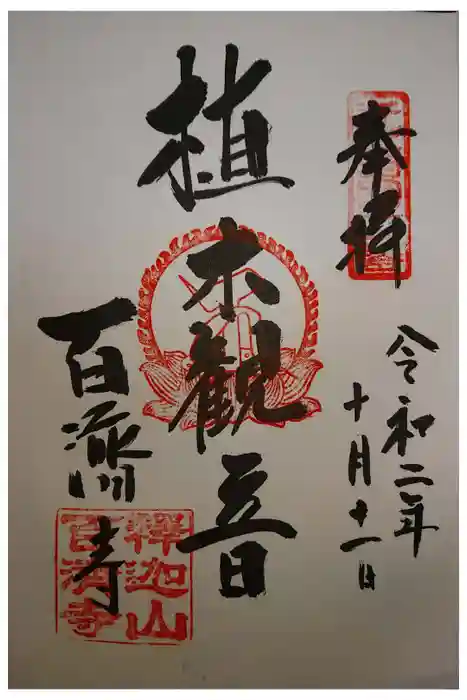 奉拝
令和二年
十月十一日
植木観音
百済寺
釋迦山
百濟寺